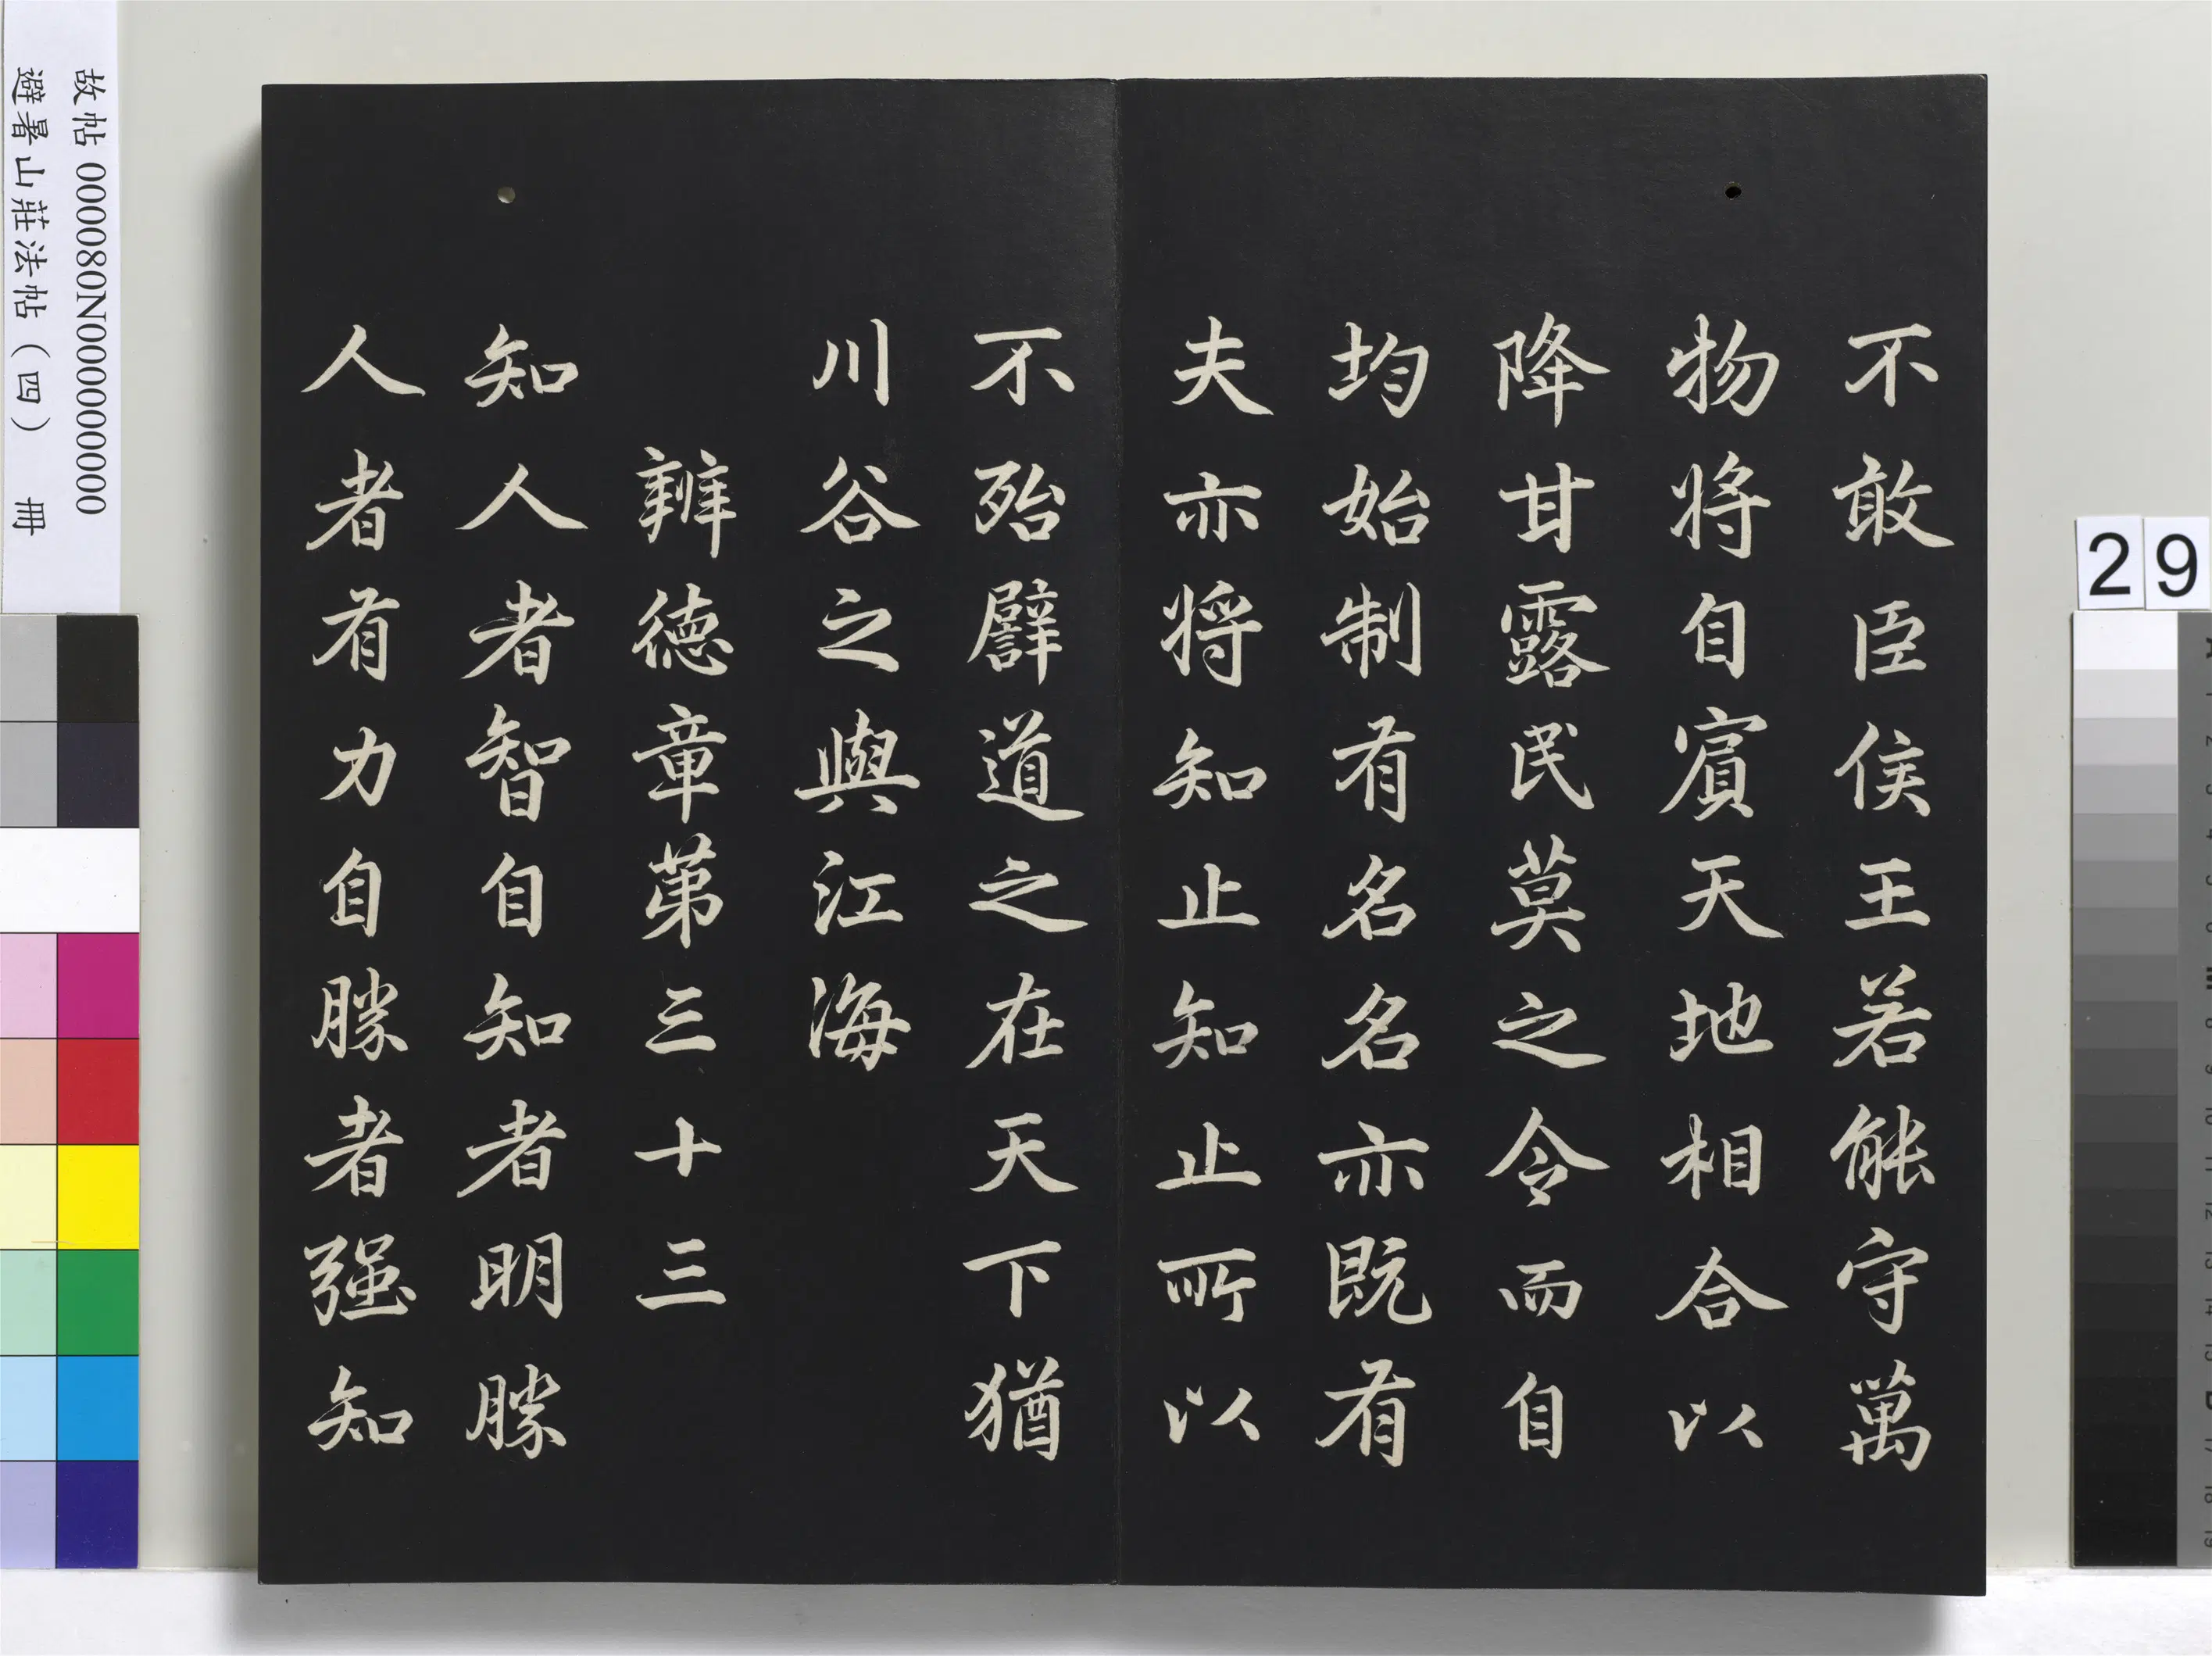 不敢臣侯王若能守萬
物將自賓天地相合以
降甘露民莫之令而自
均始制有名名亦既有
夫亦將知止知止所以
不殆譬道之在天下猶
川谷之與江海
辨德章第三十三
知人者智自知者明勝
人者有力自勝者强知
故帖 000080N000000000
避暑山莊法帖（四） 冊
29